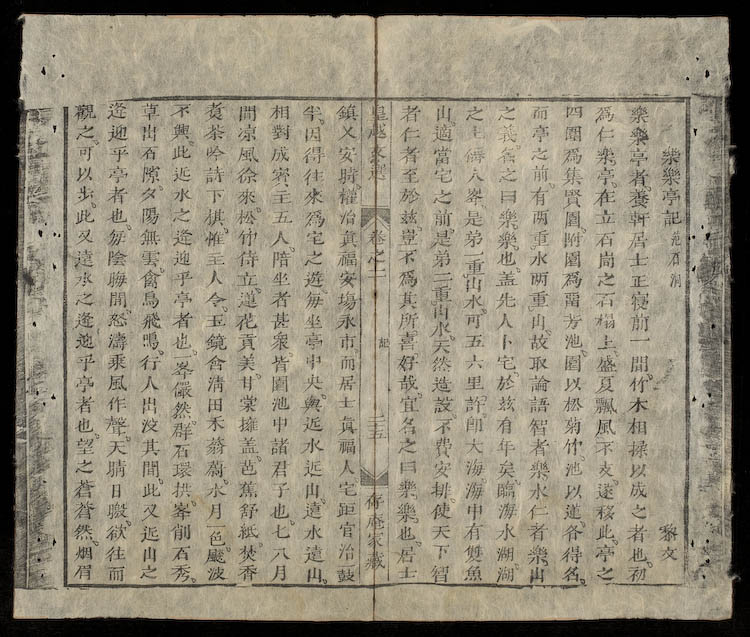 樂樂亭記 范石洞 黎文
樂樂亭者養軒居士正寢前一間竹木相操以成之者也初
爲仁樂亭在立石崗之石榻上盛夏飄風不支遂移此亭之
四圍爲集賢園附園爲畱芳池園以松菊竹池以蓮各得名
而亭之前有兩重水兩重山故取論語智者樂水仁者樂山
之義名之曰樂樂也盖先人卜宅於兹有年矣臨海水湖湖
之上 人峯是弟一重山水可五六里許卽大海海中有雙魚
山適當宅之前是弟二重山水天然造設不費安排使天下智
者仁者至於兹豈不爲其所喜好哉宜名之曰樂樂也居士
皇越文選 卷之二 記 二五 存庵家藏
鎮乂安時權治眞福安場永市而居士眞福人宅距官治鼓
半因得往來爲宅之遊每坐亭中央與近水近山遠水遠山
相對成賓主五人陪坐者甚衆皆園池中諸君子也七八月
間凉風徐來松竹侍立蓮花貢美甘棠擁盖芭蕉舒紙焚香
煑茶吟詩下棋惟主人令玉鏡含清田禾蓊蔚水月一色颷波
不興此近水之逢迎乎亭者也一峯儼然群石環拱峯削石秀
草出石隙夕陽無雲禽鳥飛鳴行人出沒其間此又近山之
逢迎乎亭者也每陰晦閒怒濤乘風作聲天睛日暾欲往而
觀之可以步此又遠水之逢迎乎亭者也望之蒼蒼然烟眉